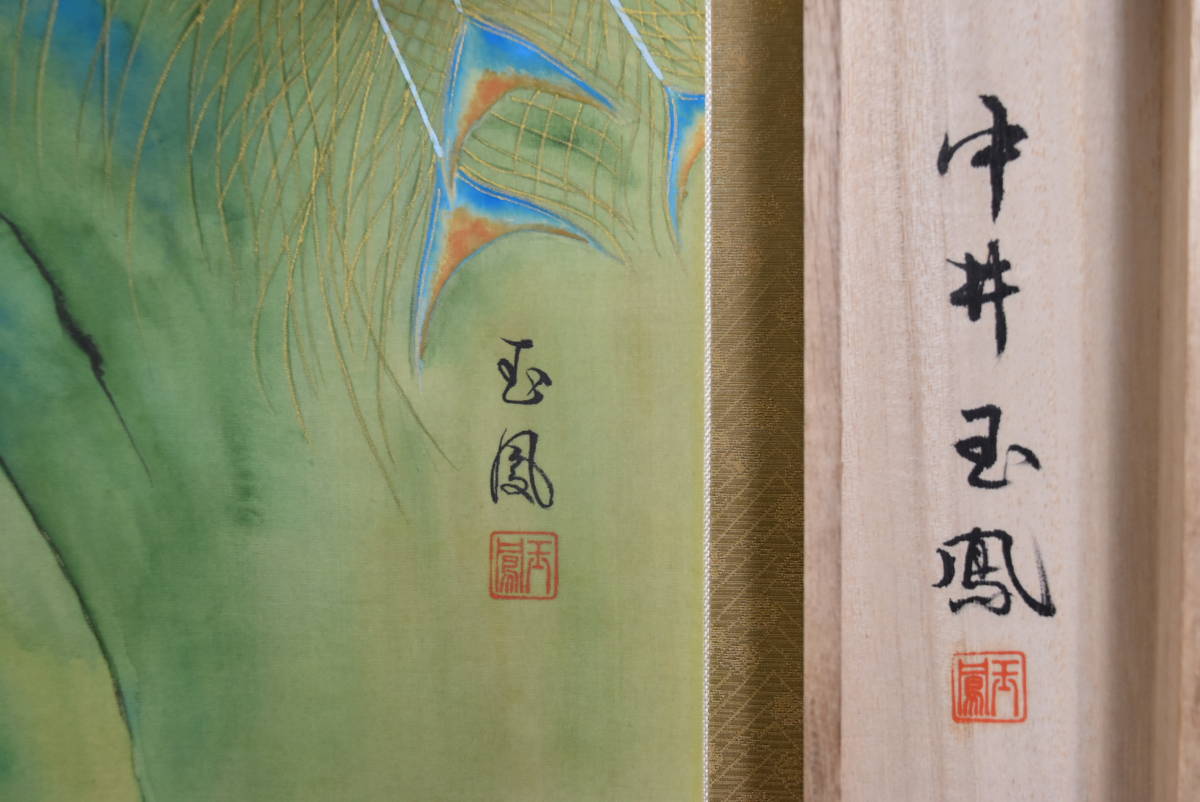 玉鳳
玉鳳
中井玉鳳
玉鳳